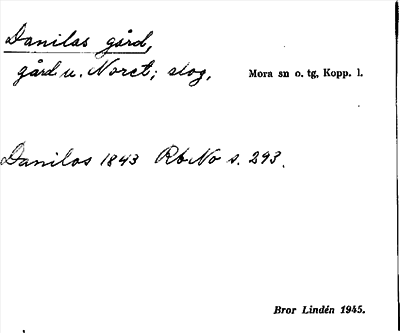 Danilas gård,
gård u. Noret; slog.
Mora sn o. tg, Kopp. l.
Danilos 1843 RbNo s. 293.
Bror Lindén 1945.